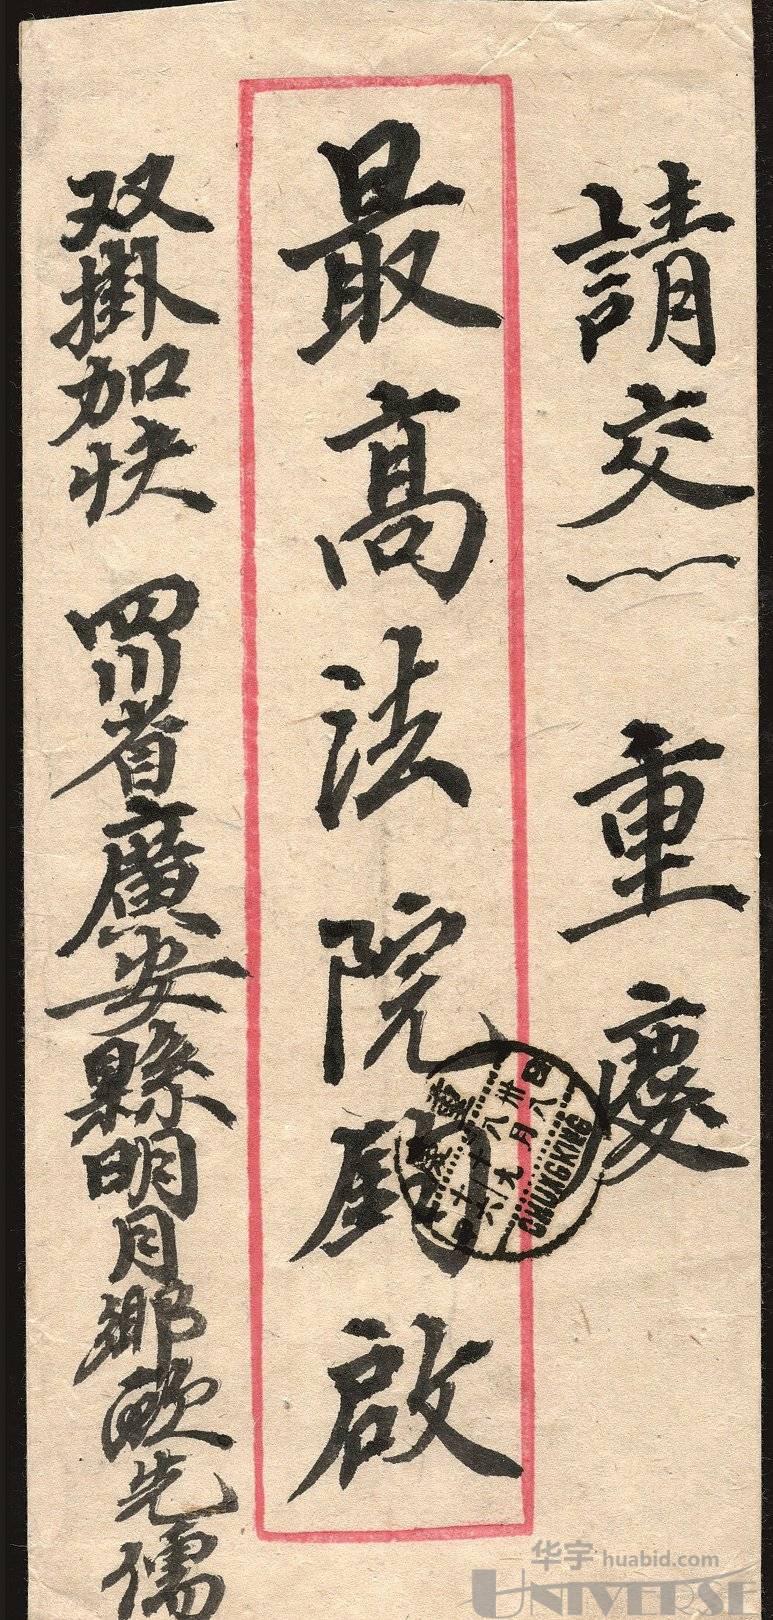 請交 重慶
最高法院鈞啟
双掛加快 四川省廣安縣明月鄉歐先儒
重慶
CHUNGKING
华宇 huabid.com
UNIVERSE